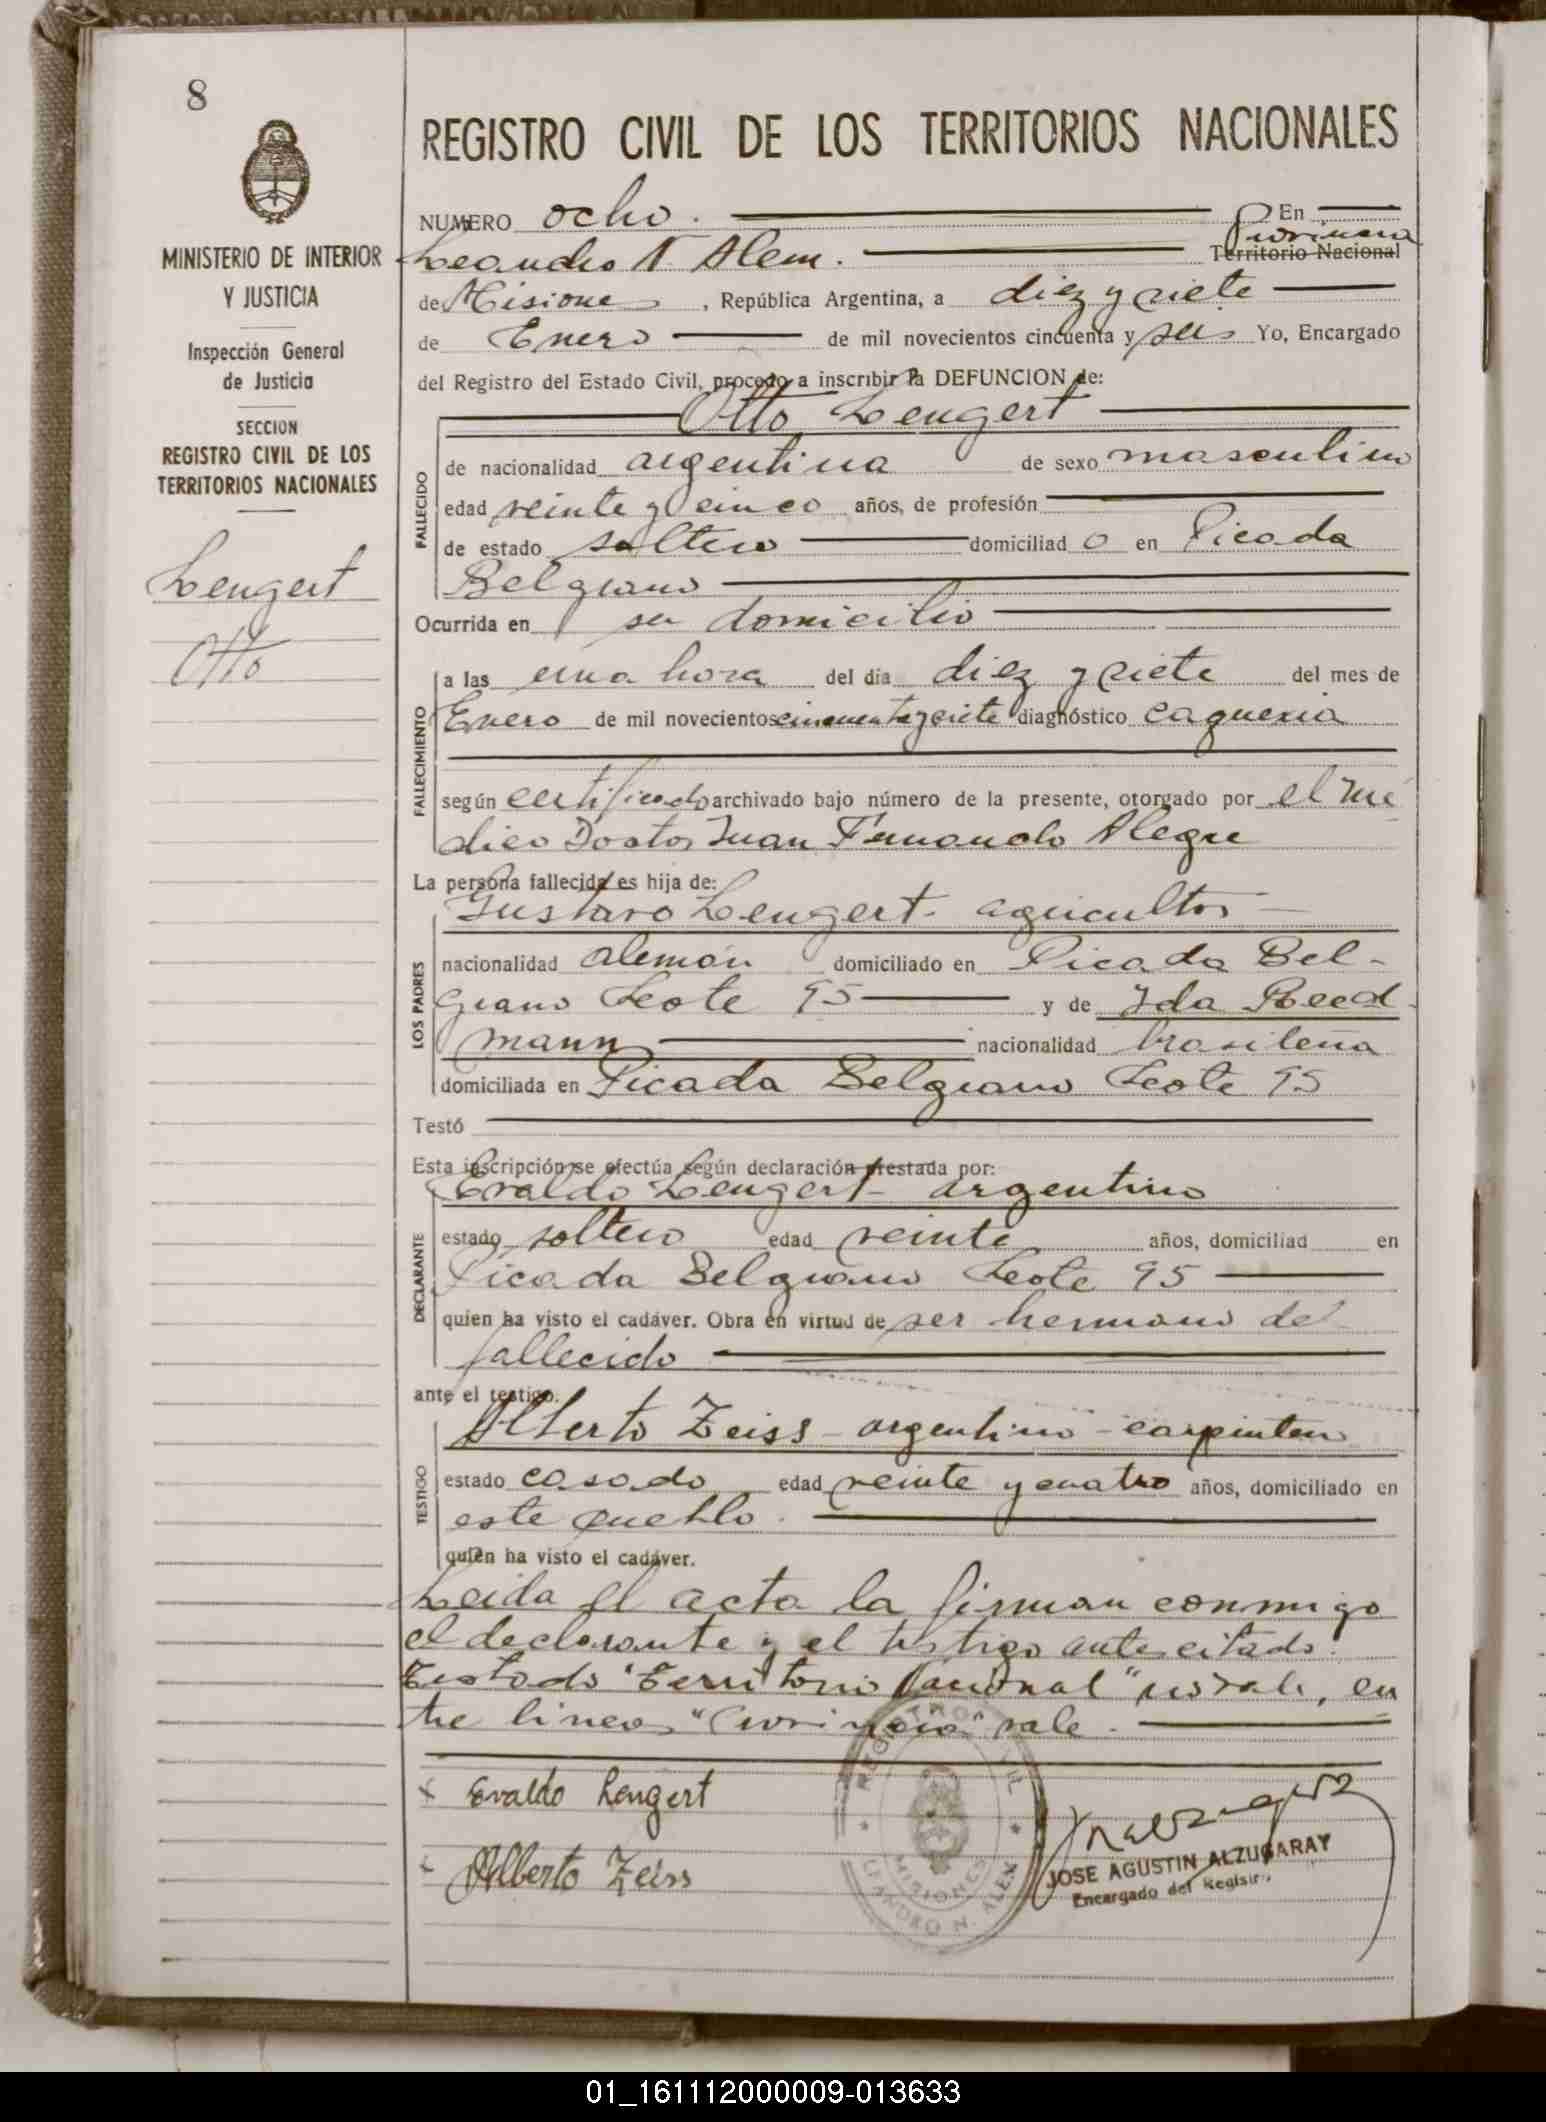 8
REGISTRO CIVIL DE LOS TERRITORIOS NACIONALES
MINISTERIO DE INTERIOR
Y JUSTICIA
Inspección General
de Justicia
SECCION
REGISTRO CIVIL DE LOS
TERRITORIOS NACIONALES
Lengert
Otto
NUMERO ocho. En
Provincia
Leandro N. Alem. Territorio Nacional
de Misiones, República Argentina, a diez y siete
de Enero de mil novecientos cincuenta y seis Yo, Encargado
del Registro del Estado Civil, procedo a inscribir la DEFUNCION de:
Otto Lengert
FALLECIDO
de nacionalidad argentina de sexo masculino
edad veinte y cinco años, de profesión
de estado soltero domiciliado en Picada
Belgrano
Ocurrida en su domicilio
FALLECIMIENTO
a las una hora del día diez y siete del mes de
Enero de mil novecientos cincuenta y siete diagnóstico caquexia
según certificado archivado bajo número de la presente, otorgado por el mé
dico Doctor Juan Fernando Alegre
La persona fallecida es hija de:
LOS PADRES
Gustavo Lengert - agricultor
nacionalidad alemán domiciliado en Picada Bel-
grano Lote 95 y de Ida Reed
mann nacionalidad brasileña
domiciliada en Picada Belgrano Lote 95
Testó
Esta inscripción se efectúa según declaración prestada por:
DECLARANTE
Evaldo Lengert - argentino
estado soltero edad veinte años, domiciliad en
Picada Belgrano Lote 95
quien ha visto el cadáver. Obra en virtud de ser hermano del
fallecido
ante el testigo:
TESTIGO
Alberto Zeiss - argentino - carpintero
estado casado edad veinte y cuatro años, domiciliado en
este pueblo.
quien ha visto el cadáver.
Leida el acta la firman conmigo
el declarante y el testigo antes citado.
Testado "Territorio Nacional" no vale, en
tre lineas "Provincia" vale.
Evaldo Lengert
Alberto Zeiss
REGISTRO CIVIL
MISIONES
LEANDRO N. ALEM
JOSE AGUSTIN ALZUGARAY
Encargado del Registro
01_161112000009-013633